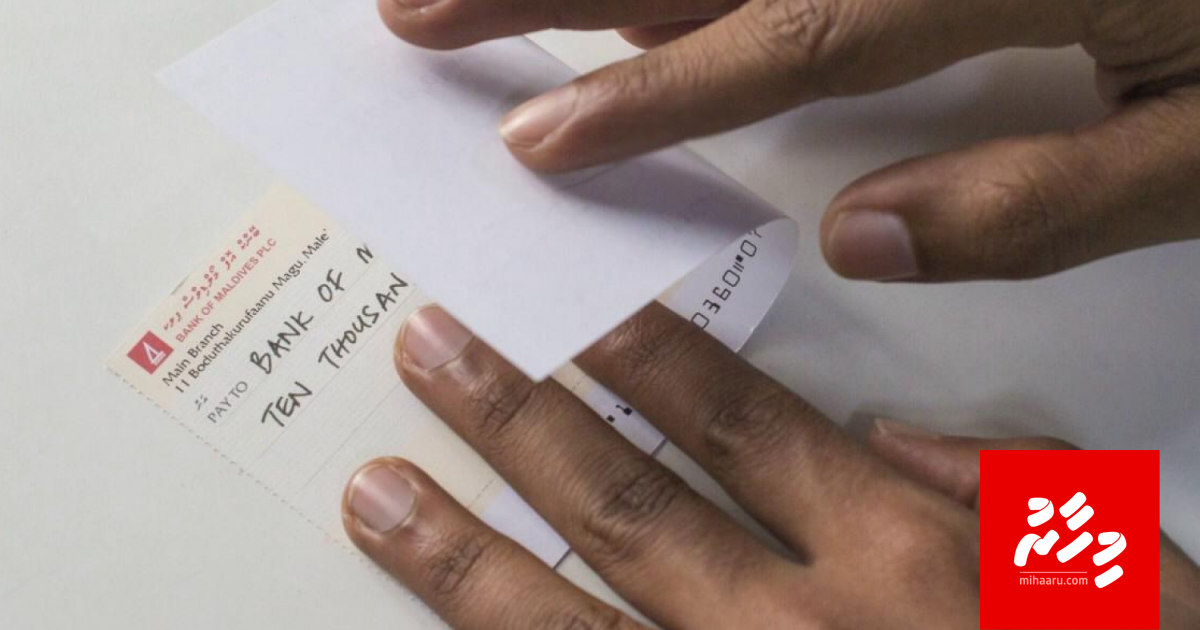 ބޭންކް އޮފް މޯލްޑިވްސް
BANK OF MALDIVES PLC
Main Branch
11 Boduthakurufaanu Magu, Male'
PAY TO BANK OF
TEN THOUSAN
0360
މިހާރު
mihaaru.com